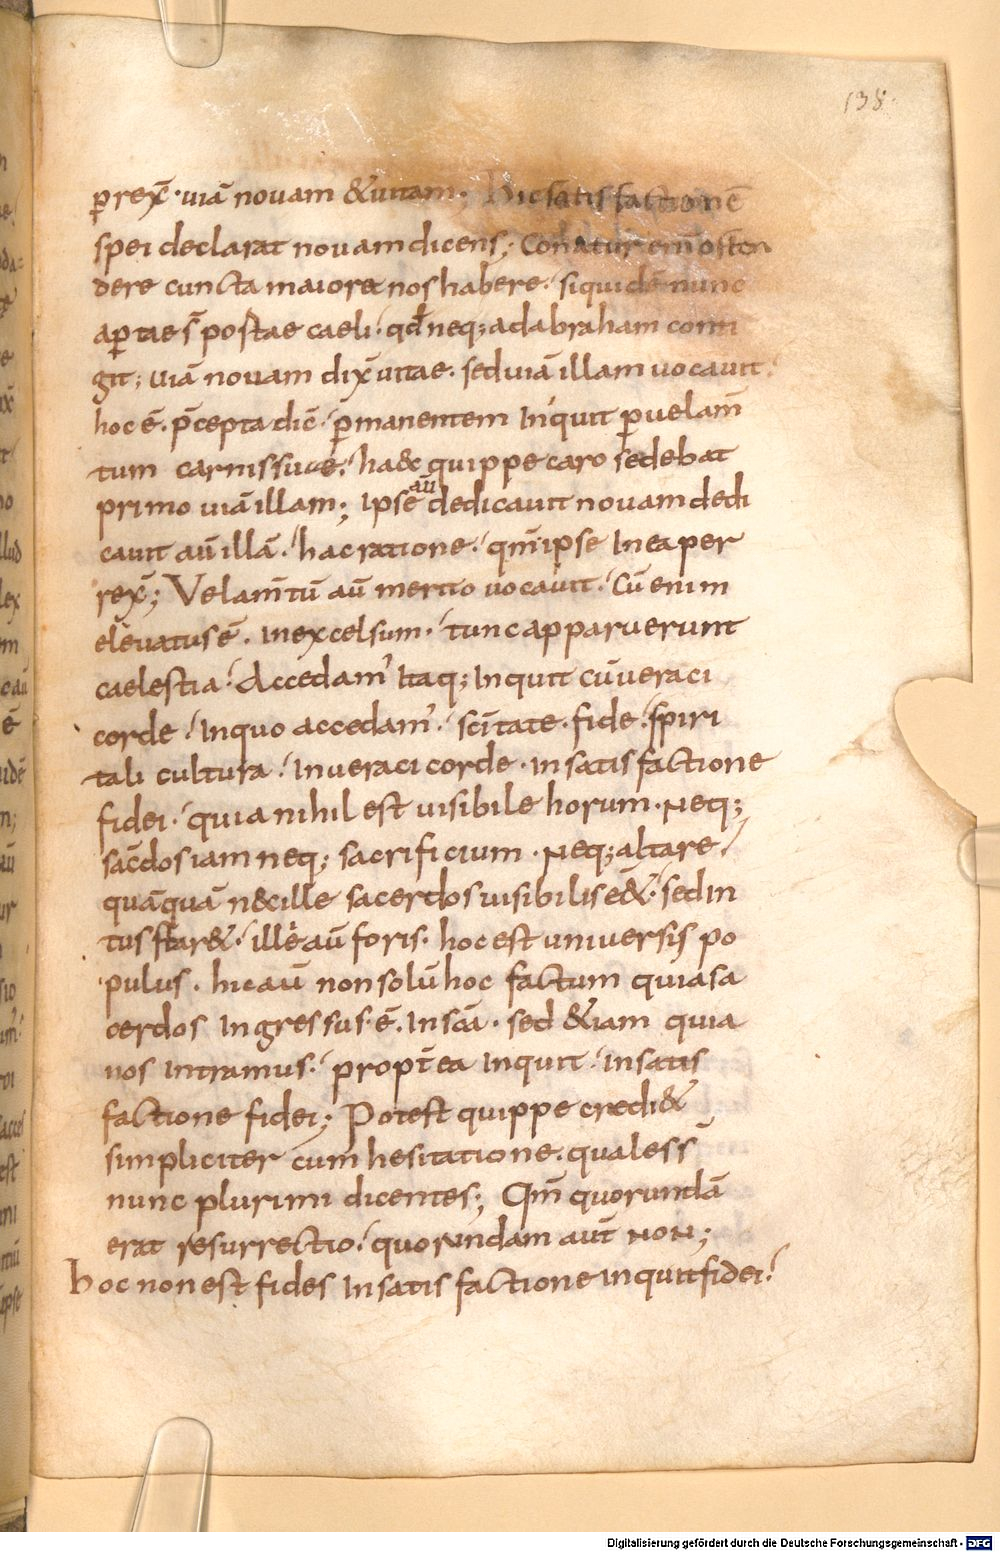 138.
p̲rex̄· uiā nouam &uitam; Hic satis factionē
spei declarat nouam dicens; Conatur eni̅ osten
dere cuncta maiora nos habere· siquidē nunc
ap̲tae s̄ postae caeli· qđ neq; adabraham conti
git; uiā nouam dix̄ uitae· sed uiā illam uocauit·
hoc ē· p̄cepta dic̄· p̲manentem Inquit p̲ uelam̄
tum carnis suae· ha&c quippe caro sedebat
primo uiā illam; Ipse au̅ dedicauit nouam dedi
cauit au̅ illā· hac ratione· qm̅ ipse In ea per
rex̄; Velam̄tū au̅ merito uocauit· Cū enim
eleuatus ē· In excelsum· tunc apparuerunt
caelestia· Accedam' Itaq; Inquit cū ueraci
corde· In quo accedam'· sc̄itate· fide· spiri
tali cultura· In ueraci corde· In satisfactione
fidei· quia nihil est uisibile horum· Neq;
sac̄dos iam neq; sacrificium· Neq; altare·
quāquā n&ille sacerdos uisibilis e&· sed in
tus star&· ille au̅ foris· hoc est uniuersis po
pulus· hic au̅ non solū hoc factum quia sa
cerdos Ingressus· ē· In sc̄a· sed &iam quia
nos Intramus· propt̄ea Inquit· In satis
factione fidei; Potest quippe credi&
simpliciter cum hesitatione· quales s̄
nunc plurimi dicentes; Qm̅ quorundā
erat resurrectio· quorundam aut̄ NON;
hoc non est fides In satis factione inquit fidei·
Digitalisierung gefördert durch die Deutsche Forschungsgemeinschaft - DFG